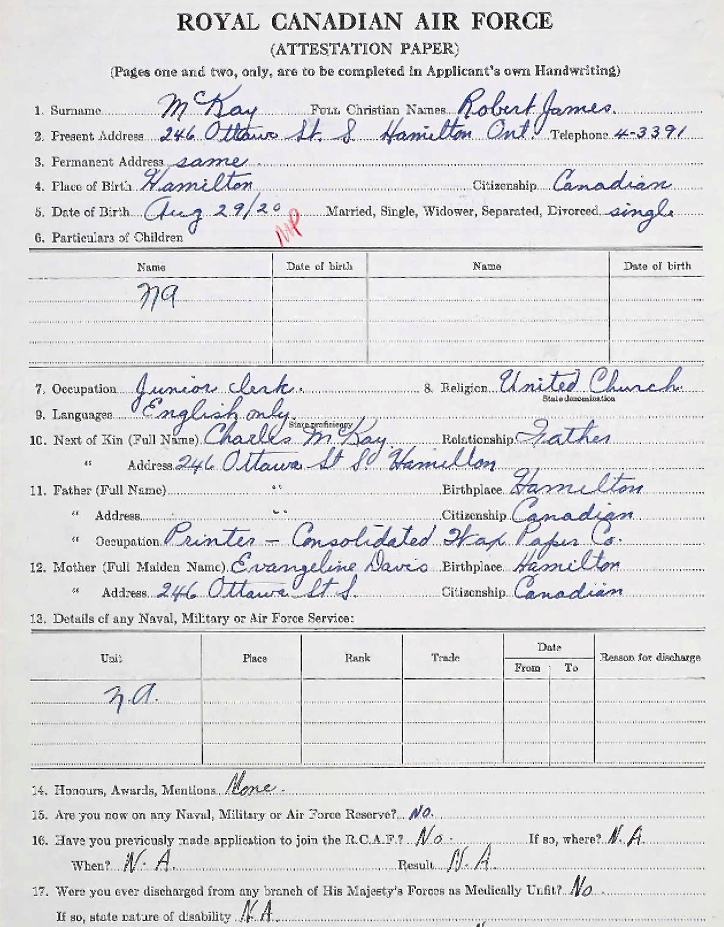 ROYAL CANADIAN AIR FORCE
(ATTESTATION PAPER)
(Pages one and two, only, are to be completed in Applicant's own Handwriting)
1. Surname McKay Full Christian Names Robert James.
2. Present Address 246 Ottawa St. S Hamilton Ont. Telephone 4-3391
3. Permanent Address same.
4. Place of Birth Hamilton Citizenship Canadian
5. Date of Birth Aug 29/20 Married, Single, Widower, Separated, Divorced single
6. Particulars of Children
Name Date of birth Name Date of birth
na
7. Occupation Junior clerk. 8. Religion United Church
State denomination
9. Languages English only.
State proficiency
10. Next of Kin (Full Name) Charles McKay Relationship Father
" Address 246 Ottawa St S. Hamilton
11. Father (Full Name) " Birthplace Hamilton
" Address " Citizenship Canadian
" Occupation Printer - Consolidated Wax Paper Co.
12. Mother (Full Maiden Name) Evangeline Davis Birthplace Hamilton
" Address 246 Ottawa St S. Citizenship Canadian
13. Details of any Naval, Military or Air Force Service:
Unit Place Rank Trade Date Reason for discharge
From To
n.a.
14. Honours, Awards, Mentions None.
15. Are you now on any Naval, Military or Air Force Reserve? No.
16. Have you previously made application to join the R.C.A.F.? No. If so, where? N.A.
When? N.A. Result N.A.
17. Were you ever discharged from any branch of His Majesty's Forces as Medically Unfit? No
If so, state nature of disability N A